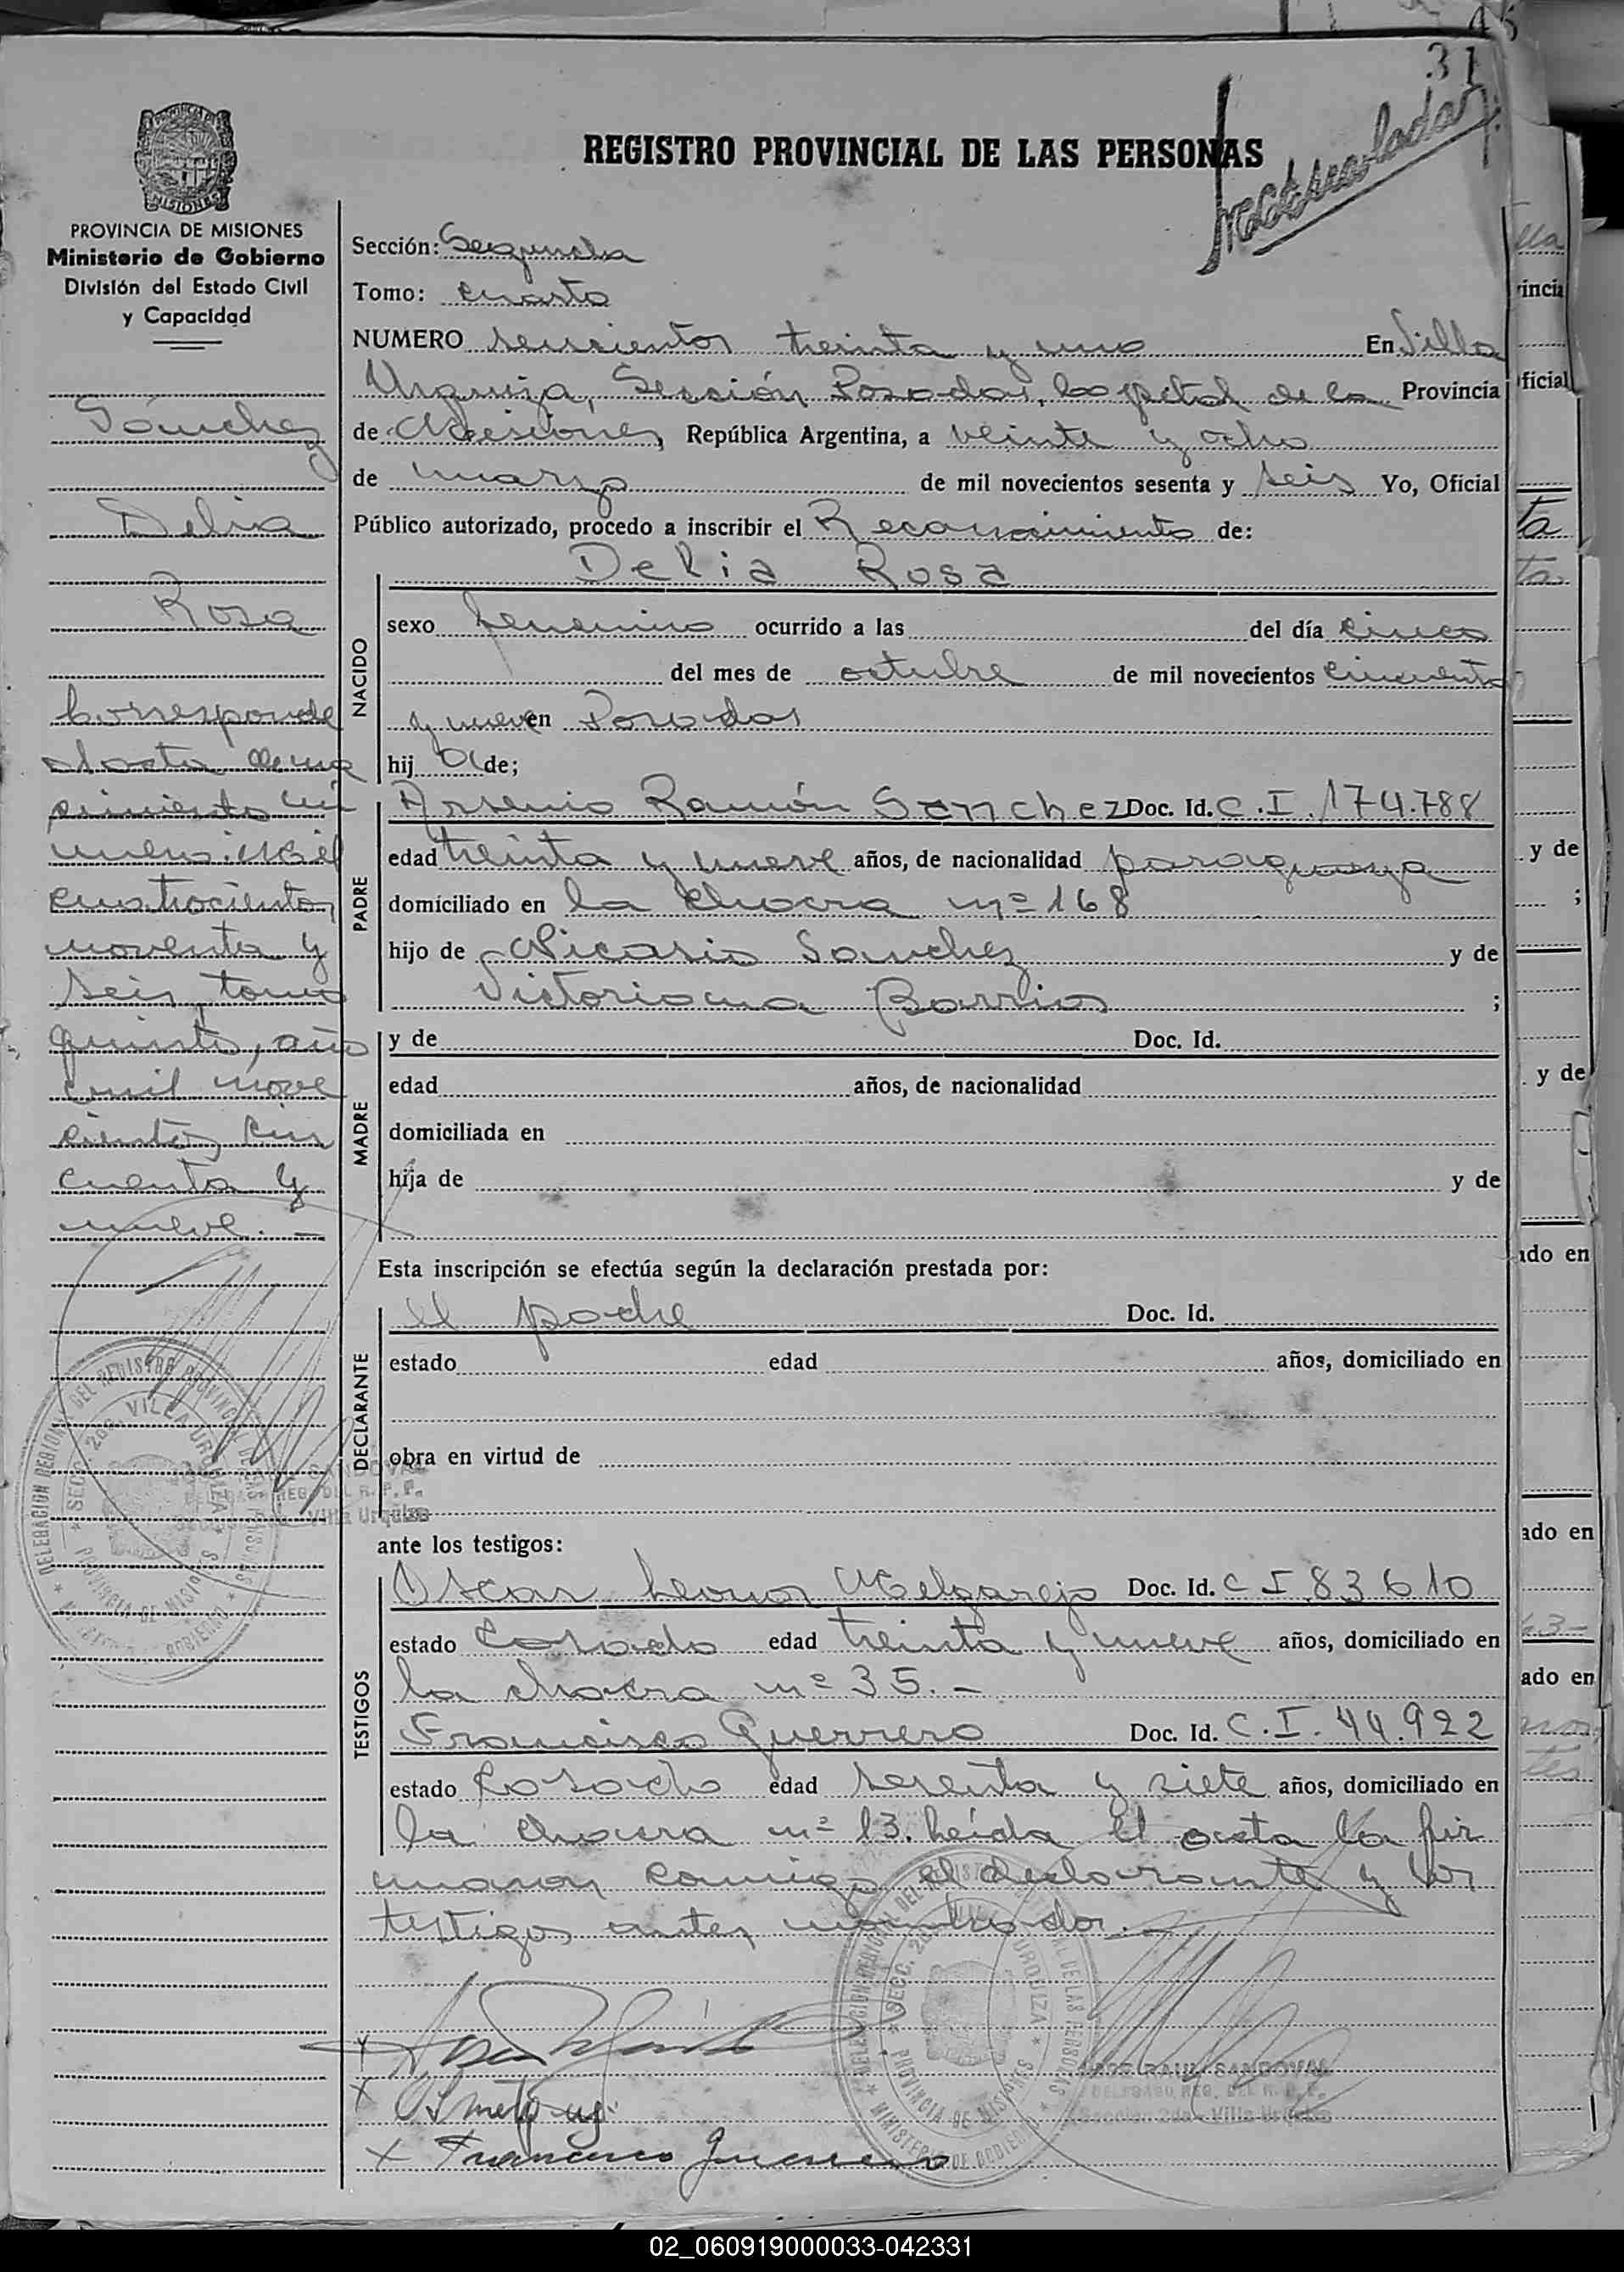 45
31
REGISTRO PROVINCIAL DE LAS PERSONAS
PROVINCIA DE MISIONES
Ministerio de Gobierno
División del Estado Civil
y Capacidad
Sánchez
Delia
Rosa
Corresponde
al acta de na
cimiento nú
mero: Mil
cuatrocientos
noventa y
seis, tomo
quinto, año
mil nove
cientos cin
cuenta y
nueve. -
Sección: Segunda
Tomo: cuarto
NUMERO seiscientos treinta y uno En Villa
Urquiza, Sección Posadas, Capital de la Provincia
de Misiones, República Argentina, a veinte y ocho
de marzo de mil novecientos sesenta y seis Yo, Oficial
Público autorizado, procedo a inscribir el Reconocimiento de:
Delia Rosa
NACIDO
sexo femenino ocurrido a las del día cinco
del mes de octubre de mil novecientos cincuenta
y nueve en Posadas
hij a de;
PADRE
Arsenio Ramón Sanchez Doc. Id. C.I. 174.788
edad treinta y nueve años, de nacionalidad paraguaya
domiciliado en la chacra nº 168
hijo de Nicasio Sanchez y de
Victoriana Barrios ;
MADRE
y de Doc. Id.
edad años, de nacionalidad
domiciliada en
hija de y de
Esta inscripción se efectúa según la declaración prestada por:
DECLARANTE
el padre Doc. Id.
estado edad años, domiciliado en
obra en virtud de
ante los testigos:
TESTIGOS
Oscar Melgarejo Doc. Id. C I 83610
estado Casado edad treinta y nueve años, domiciliado en
la chacra nº 35. -
Francisco Guerrero Doc. Id. C.I. 44.922
estado Casado edad sesenta y siete años, domiciliado en
la chacra nº 13. Leída el acta la fir
maron conmigo el declarante y los
testigos antes nombrados. -
x Francisco Guerrero
DELEGACION REGIONAL DEL REGISTRO PROVINCIAL DE LAS PERSONAS
SECC. 2da. VILLA URQUIZA
PROVINCIA DE MISIONES
MINISTERIO DE GOBIERNO
JOSE RAUL SANDOVAL
DELEGADO REG. DEL R. P. P.
Sección 2da - Villa Urquiza
02_060919000033-042331